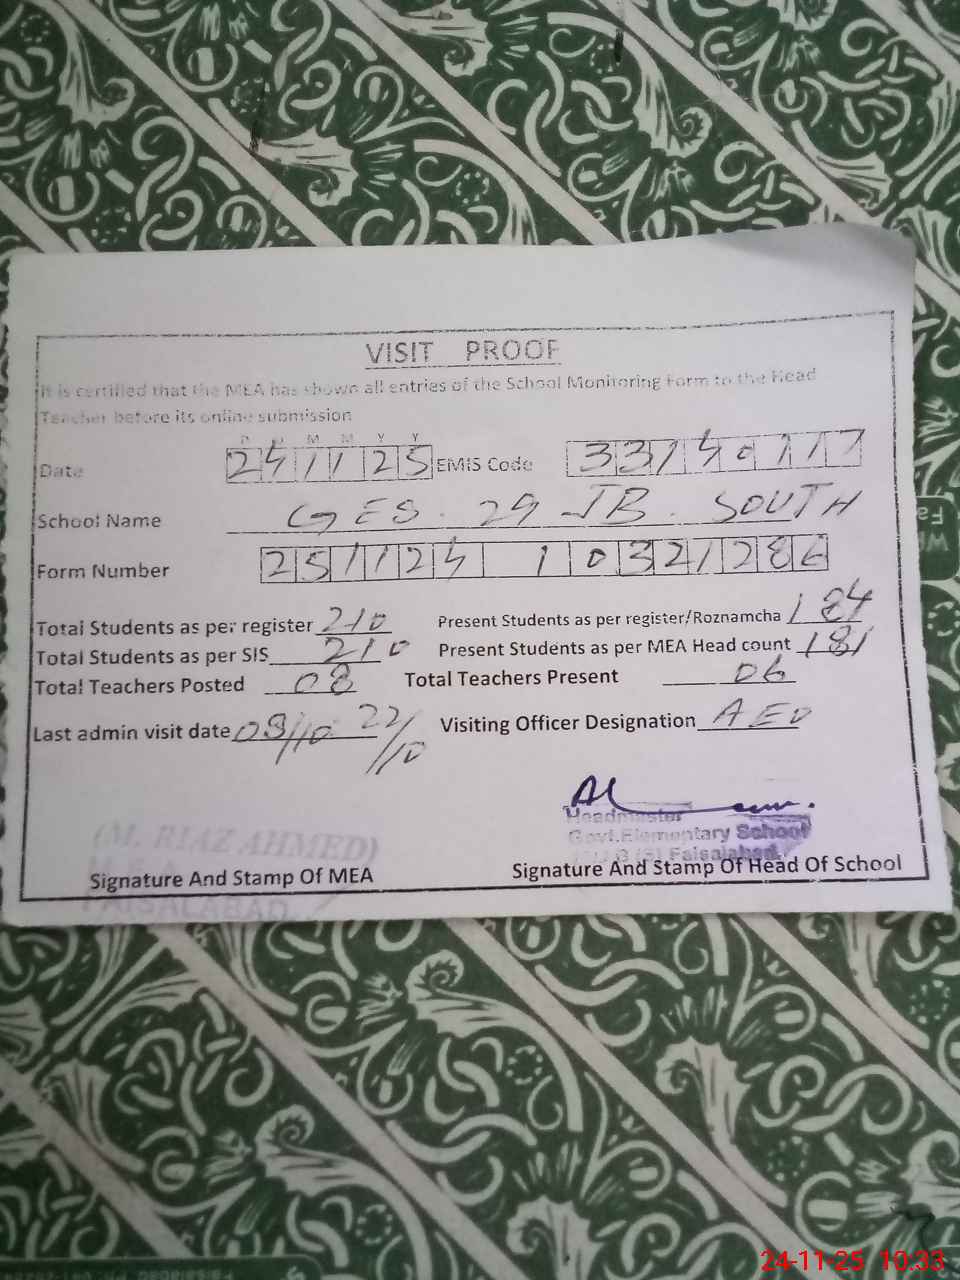 VISIT PROOF
It is certified that the MEA has shown all entries of the School Monitoring Form to the Head
Teacher before its online submission
D D M M Y Y
Date 241125 EMIS Code 33140117
School Name GES. 29 JB. SOUTH
Form Number 251124 10321286
Total Students as per register 210 Present Students as per register/Roznamcha 184
Total Students as per SIS 210 Present Students as per MEA Head count 181
Total Teachers Posted 08 Total Teachers Present 06
Last admin visit date 09/10 22/10 Visiting Officer Designation AEO
Headmaster
Govt.Elementary School
(M. RIAZ AHMED)
Faisalabad.
Signature And Stamp Of MEA Signature And Stamp Of Head Of School
FAISALABAD
24-11-25 10:33